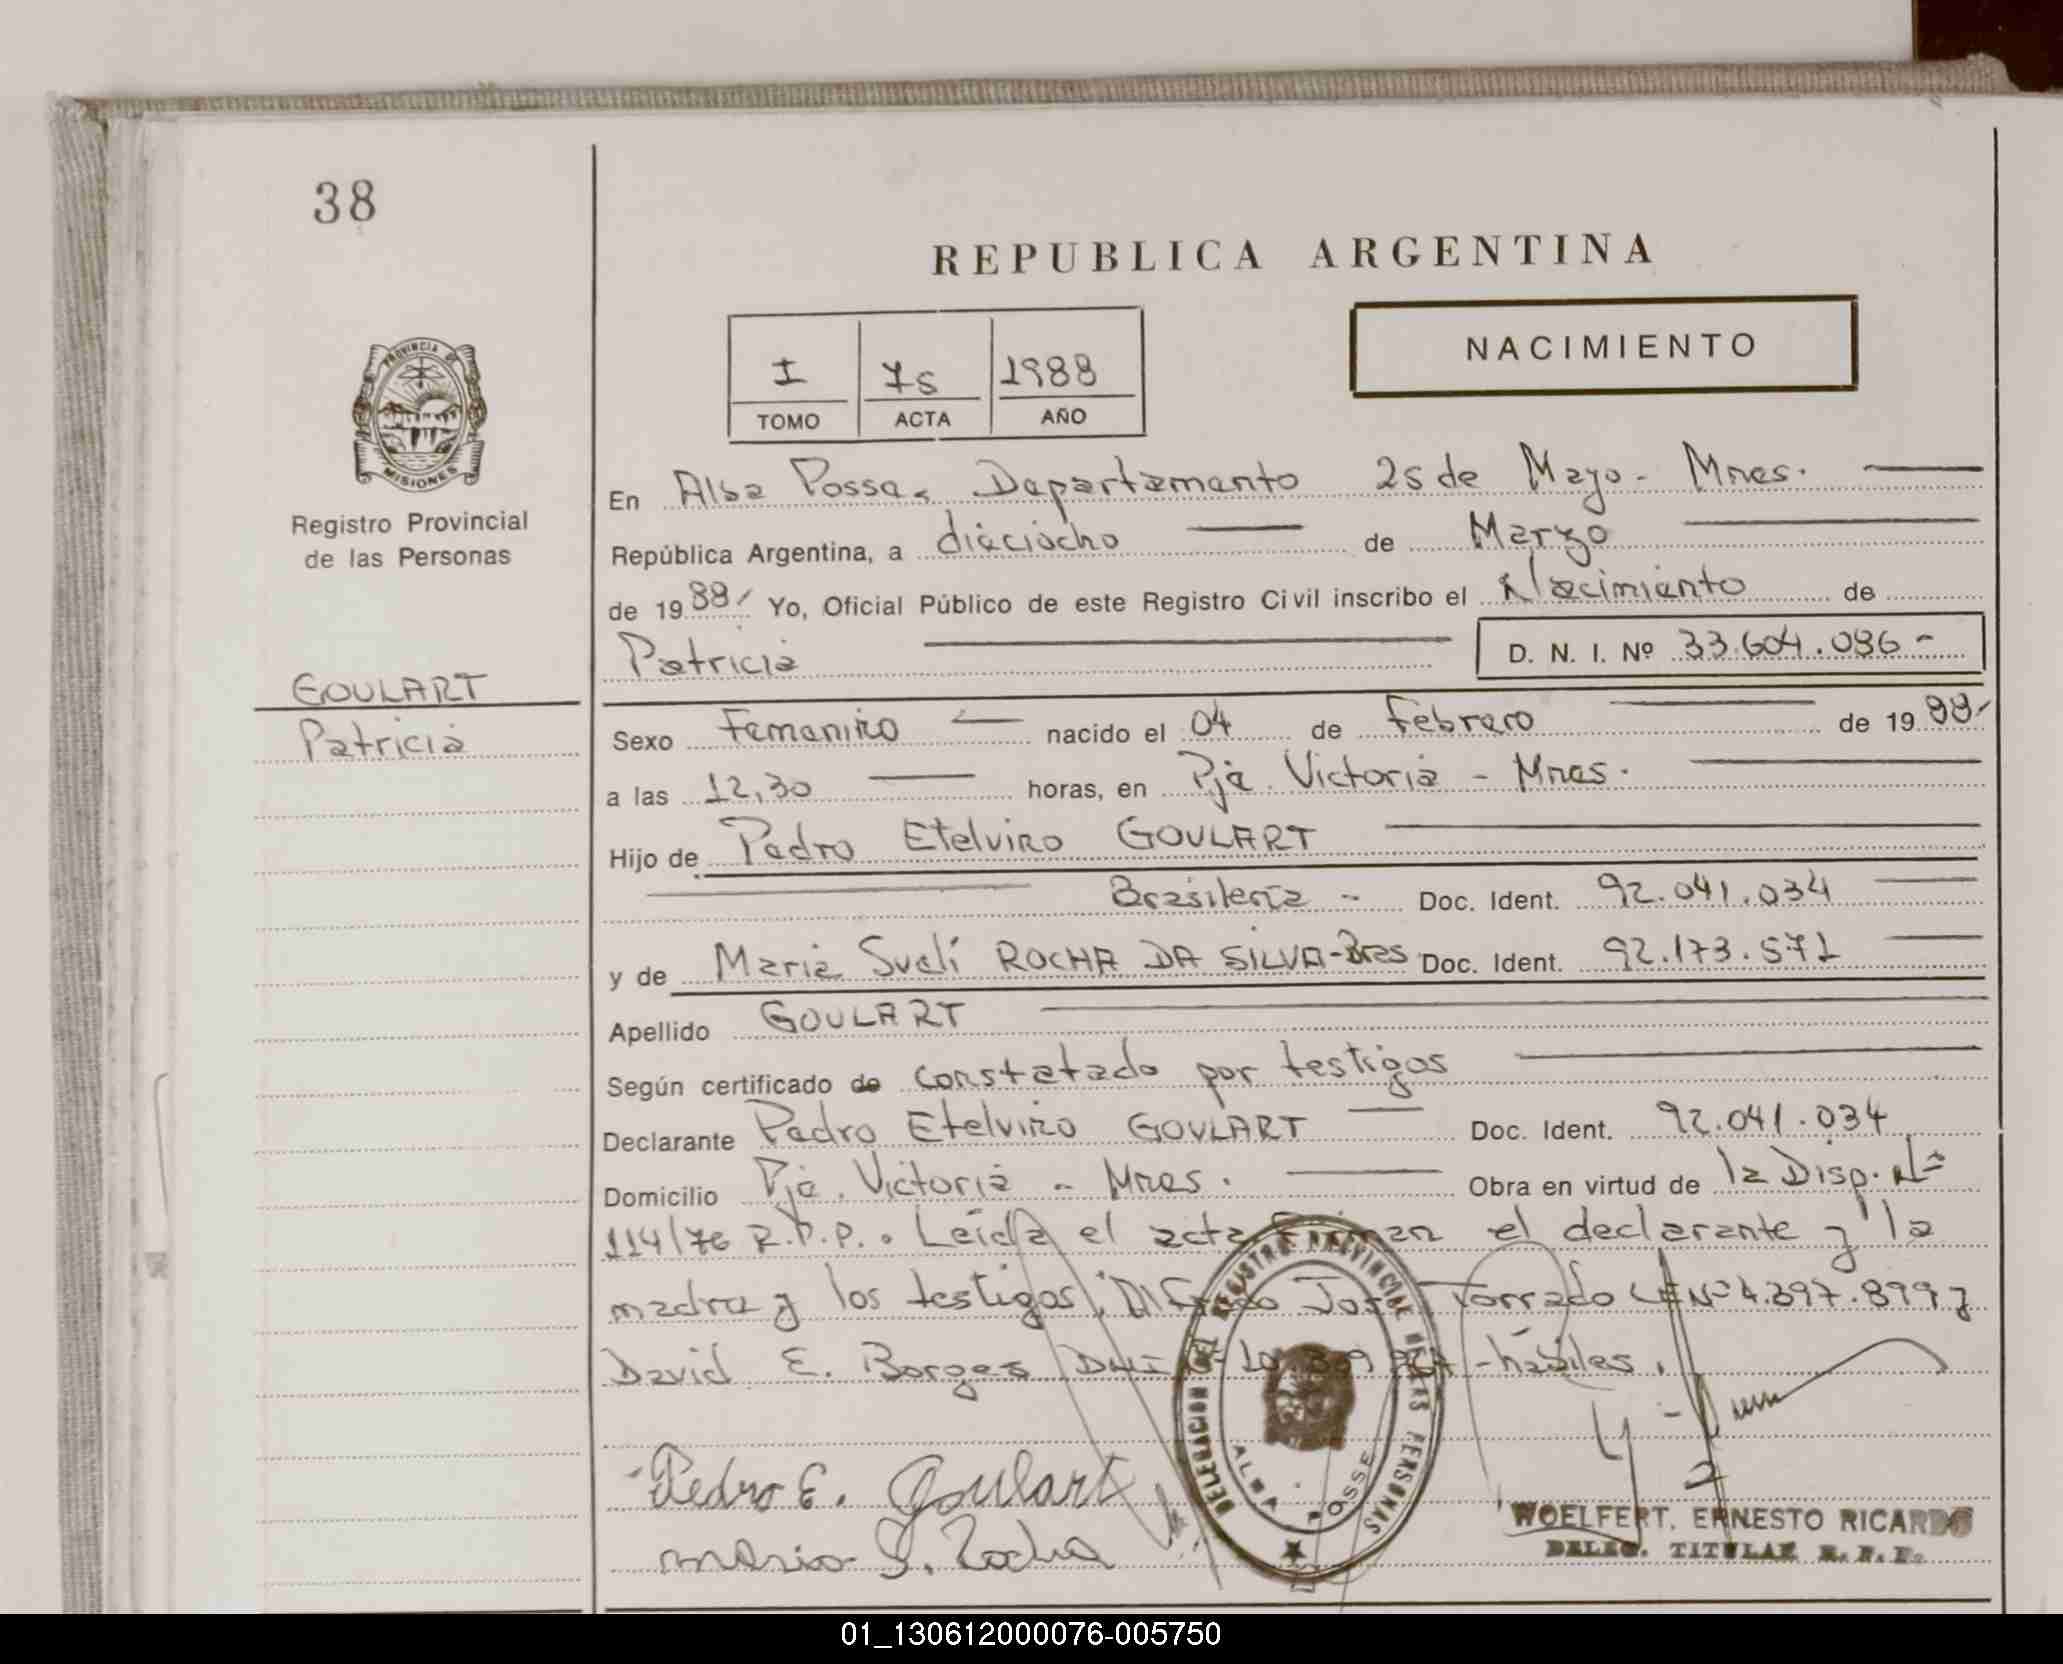 38
REPUBLICA ARGENTINA
I 75 1988
TOMO ACTA AÑO
NACIMIENTO
PROVINCIA DE
MISIONES
Registro Provincial
de las Personas
GOULART
Patricia
En Alba Posse, Departamento 25 de Mayo - Mnes.
República Argentina, a dieciocho de Marzo
de 1988 Yo, Oficial Público de este Registro Civil inscribo el Nacimiento de
Patricia D. N. I. Nº 33.604.036 -
Sexo Femenino nacido el 04 de Febrero de 1988
a las 12,30 horas, en Pje. Victoria - Mnes.
Hijo de Pedro Etelvino GOULART
Brasilería - Doc. Ident. 92.041.034
y de Maria Suelí ROCHA DA SILVA - Bras Doc. Ident. 92.173.571
Apellido GOULART
Según certificado de constatado por testigos
Declarante Pedro Etelvino GOULART Doc. Ident. 92.041.034
Domicilio Pje. Victoria - Mnes. Obra en virtud de la Disp. Nº
114/76 R.P.P. Leída el acta Firman el declarante y la
madre y los testigos, José Torrado LE Nº 4.397.899 y
David E. Borges DNI -hábiles.
DELEGACION DEL REGISTRO PROVINCIAL DE LAS PERSONAS
ALBA POSSE
Pedro E. Goulart
Maria S. Rocha
WOELFERT, ERNESTO RICARDO
DELEG. TITULAR R. P. P.
01_130612000076-005750